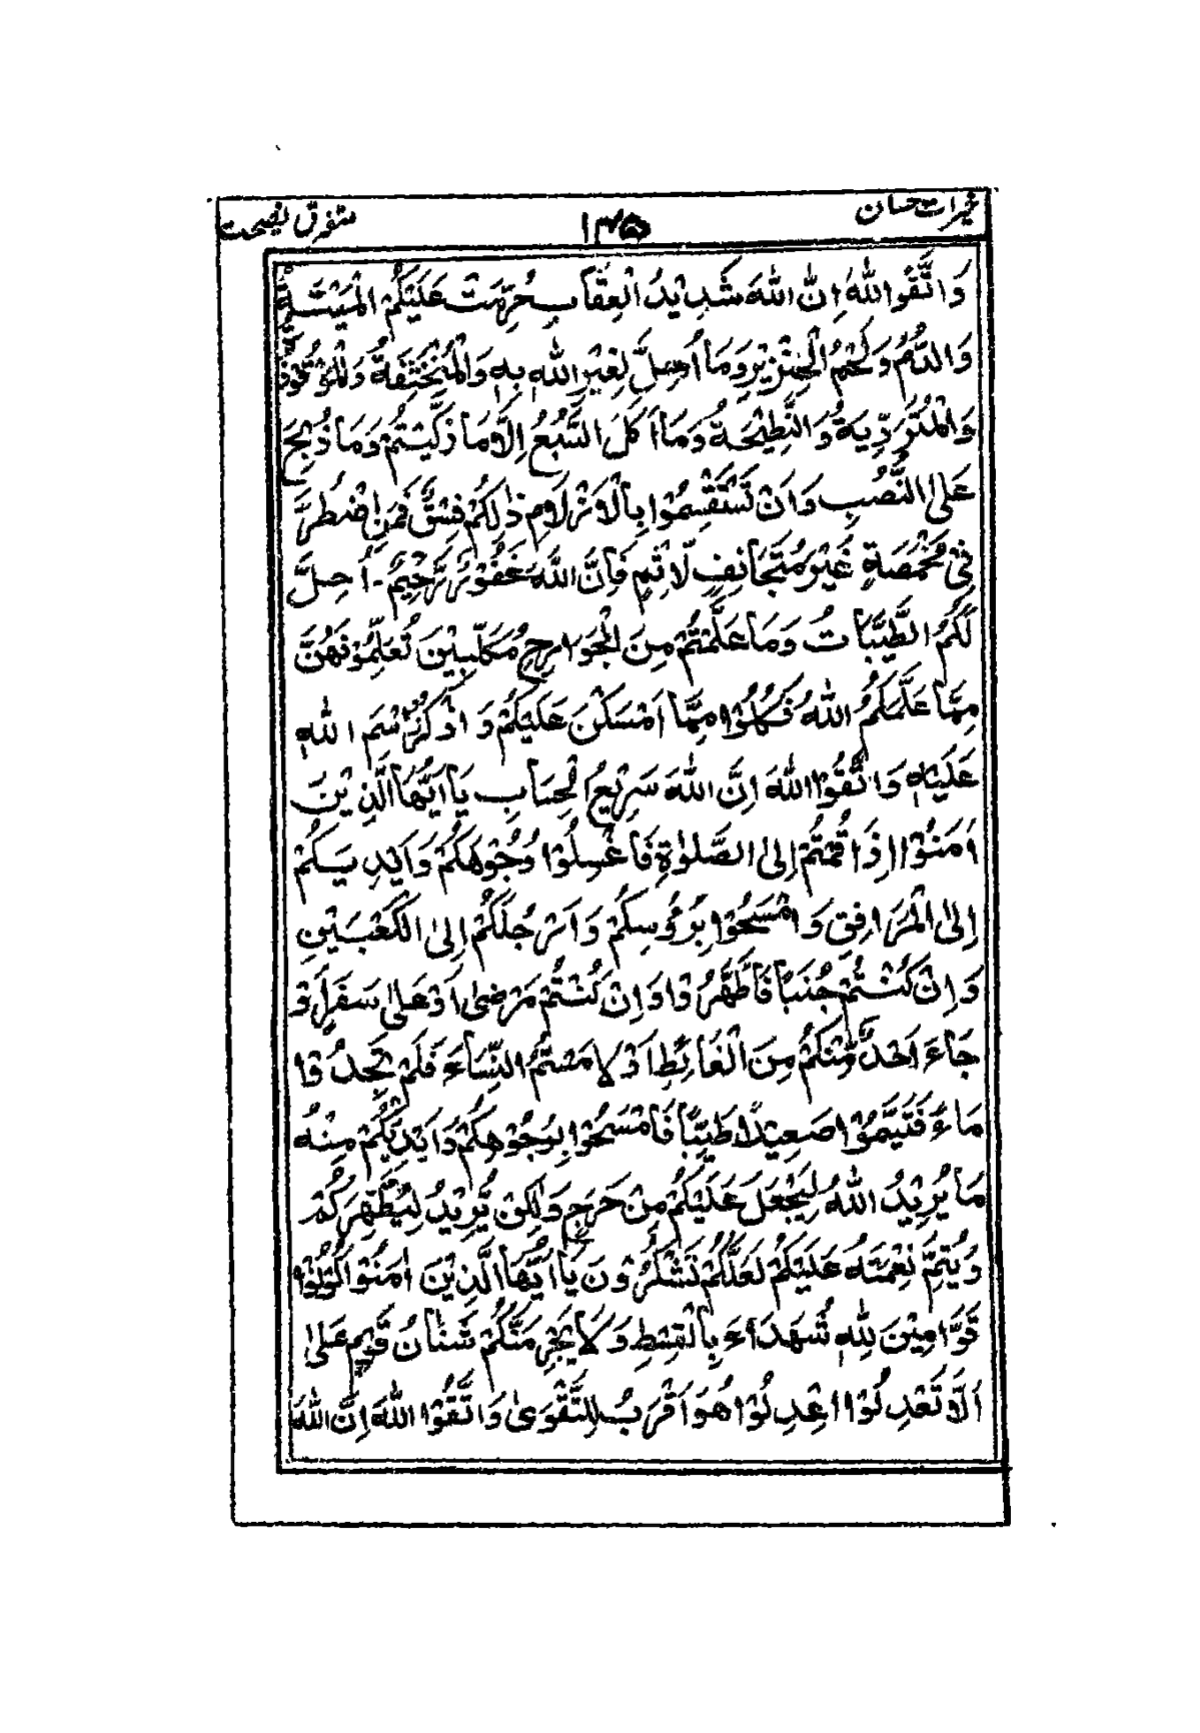 ثمرات حسان ١٣٥ متفرق نصیحت
وَاتَّقُوا اللّٰهَ اِنَّ اللّٰهَ شَدِیْدُ الْعِقَابِ حُرِّمَتْ عَلَیْكُمُ الْمَیْتَةُ
وَالدَّمُ وَلَحْمُ الْخِنْزِیْرِ وَمَا اُهِلَّ لِغَیْرِ اللّٰهِ بِهٖ وَالْمُنْخَنِقَةُ وَالْمَوْقُوْذَةُ
وَالْمُتَرَدِّیَةُ وَالنَّطِیْحَةُ وَمَا اَكَلَ السَّبُعُ اِلَّا مَا ذَكَّیْتُمْ وَمَا ذُبِحَ
عَلَی النُّصُبِ وَاَنْ تَسْتَقْسِمُوْا بِالْاَزْلَامِ ذٰلِكُمْ فِسْقٌ فَمَنِ اضْطُرَّ
فِیْ مَخْمَصَةٍ غَیْرَ مُتَجَانِفٍ لِّاِثْمٍ فَاِنَّ اللّٰهَ غَفُوْرٌ رَّحِیْمٌ - اُحِلَّ
لَكُمُ الطَّیِّبَاتُ وَمَا عَلَّمْتُمْ مِنَ الْجَوَارِحِ مُكَلِّبِیْنَ تُعَلِّمُوْنَهُنَّ
مِمَّا عَلَّمَكُمُ اللّٰهُ فَكُلُوْا مِمَّا اَمْسَكْنَ عَلَیْكُمْ وَاذْكُرُوا اسْمَ اللّٰهِ
عَلَیْهِ وَاتَّقُوا اللّٰهَ اِنَّ اللّٰهَ سَرِیْعُ الْحِسَابِ یَا اَیُّهَا الَّذِیْنَ
اٰمَنُوْا اِذَا قُمْتُمْ اِلَی الصَّلٰوةِ فَاغْسِلُوْا وُجُوْهَكُمْ وَاَیْدِیَكُمْ
اِلَی الْمَرَافِقِ وَامْسَحُوْا بِرُءُوْسِكُمْ وَاَرْجُلَكُمْ اِلَی الْكَعْبَیْنِ
وَاِنْ كُنْتُمْ جُنُبًا فَاطَّهَّرُوْا وَاِنْ كُنْتُمْ مَرْضٰی اَوْ عَلٰی سَفَرٍ اَوْ
جَاءَ اَحَدٌ مِّنْكُمْ مِنَ الْغَائِطِ اَوْ لَامَسْتُمُ النِّسَاءَ فَلَمْ تَجِدُوْا
مَاءً فَتَیَمَّمُوْا صَعِیْدًا طَیِّبًا فَامْسَحُوْا بِوُجُوْهِكُمْ وَاَیْدِیْكُمْ مِنْهُ
مَا یُرِیْدُ اللّٰهُ لِیَجْعَلَ عَلَیْكُمْ مِنْ حَرَجٍ وَلٰكِنْ یُّرِیْدُ لِیُطَهِّرَكُمْ
وَیُتِمَّ نِعْمَتَهُ عَلَیْكُمْ لَعَلَّكُمْ تَشْكُرُوْنَ یَا اَیُّهَا الَّذِیْنَ اٰمَنُوْا كُوْنُوْا
قَوَّامِیْنَ لِلّٰهِ شُهَدَاءَ بِالْقِسْطِ وَلَا یَجْرِمَنَّكُمْ شَنَاٰنُ قَوْمٍ عَلٰی
اَلَّا تَعْدِلُوْا اِعْدِلُوْا هُوَ اَقْرَبُ لِلتَّقْوٰی وَاتَّقُوا اللّٰهَ اِنَّ اللّٰهَ